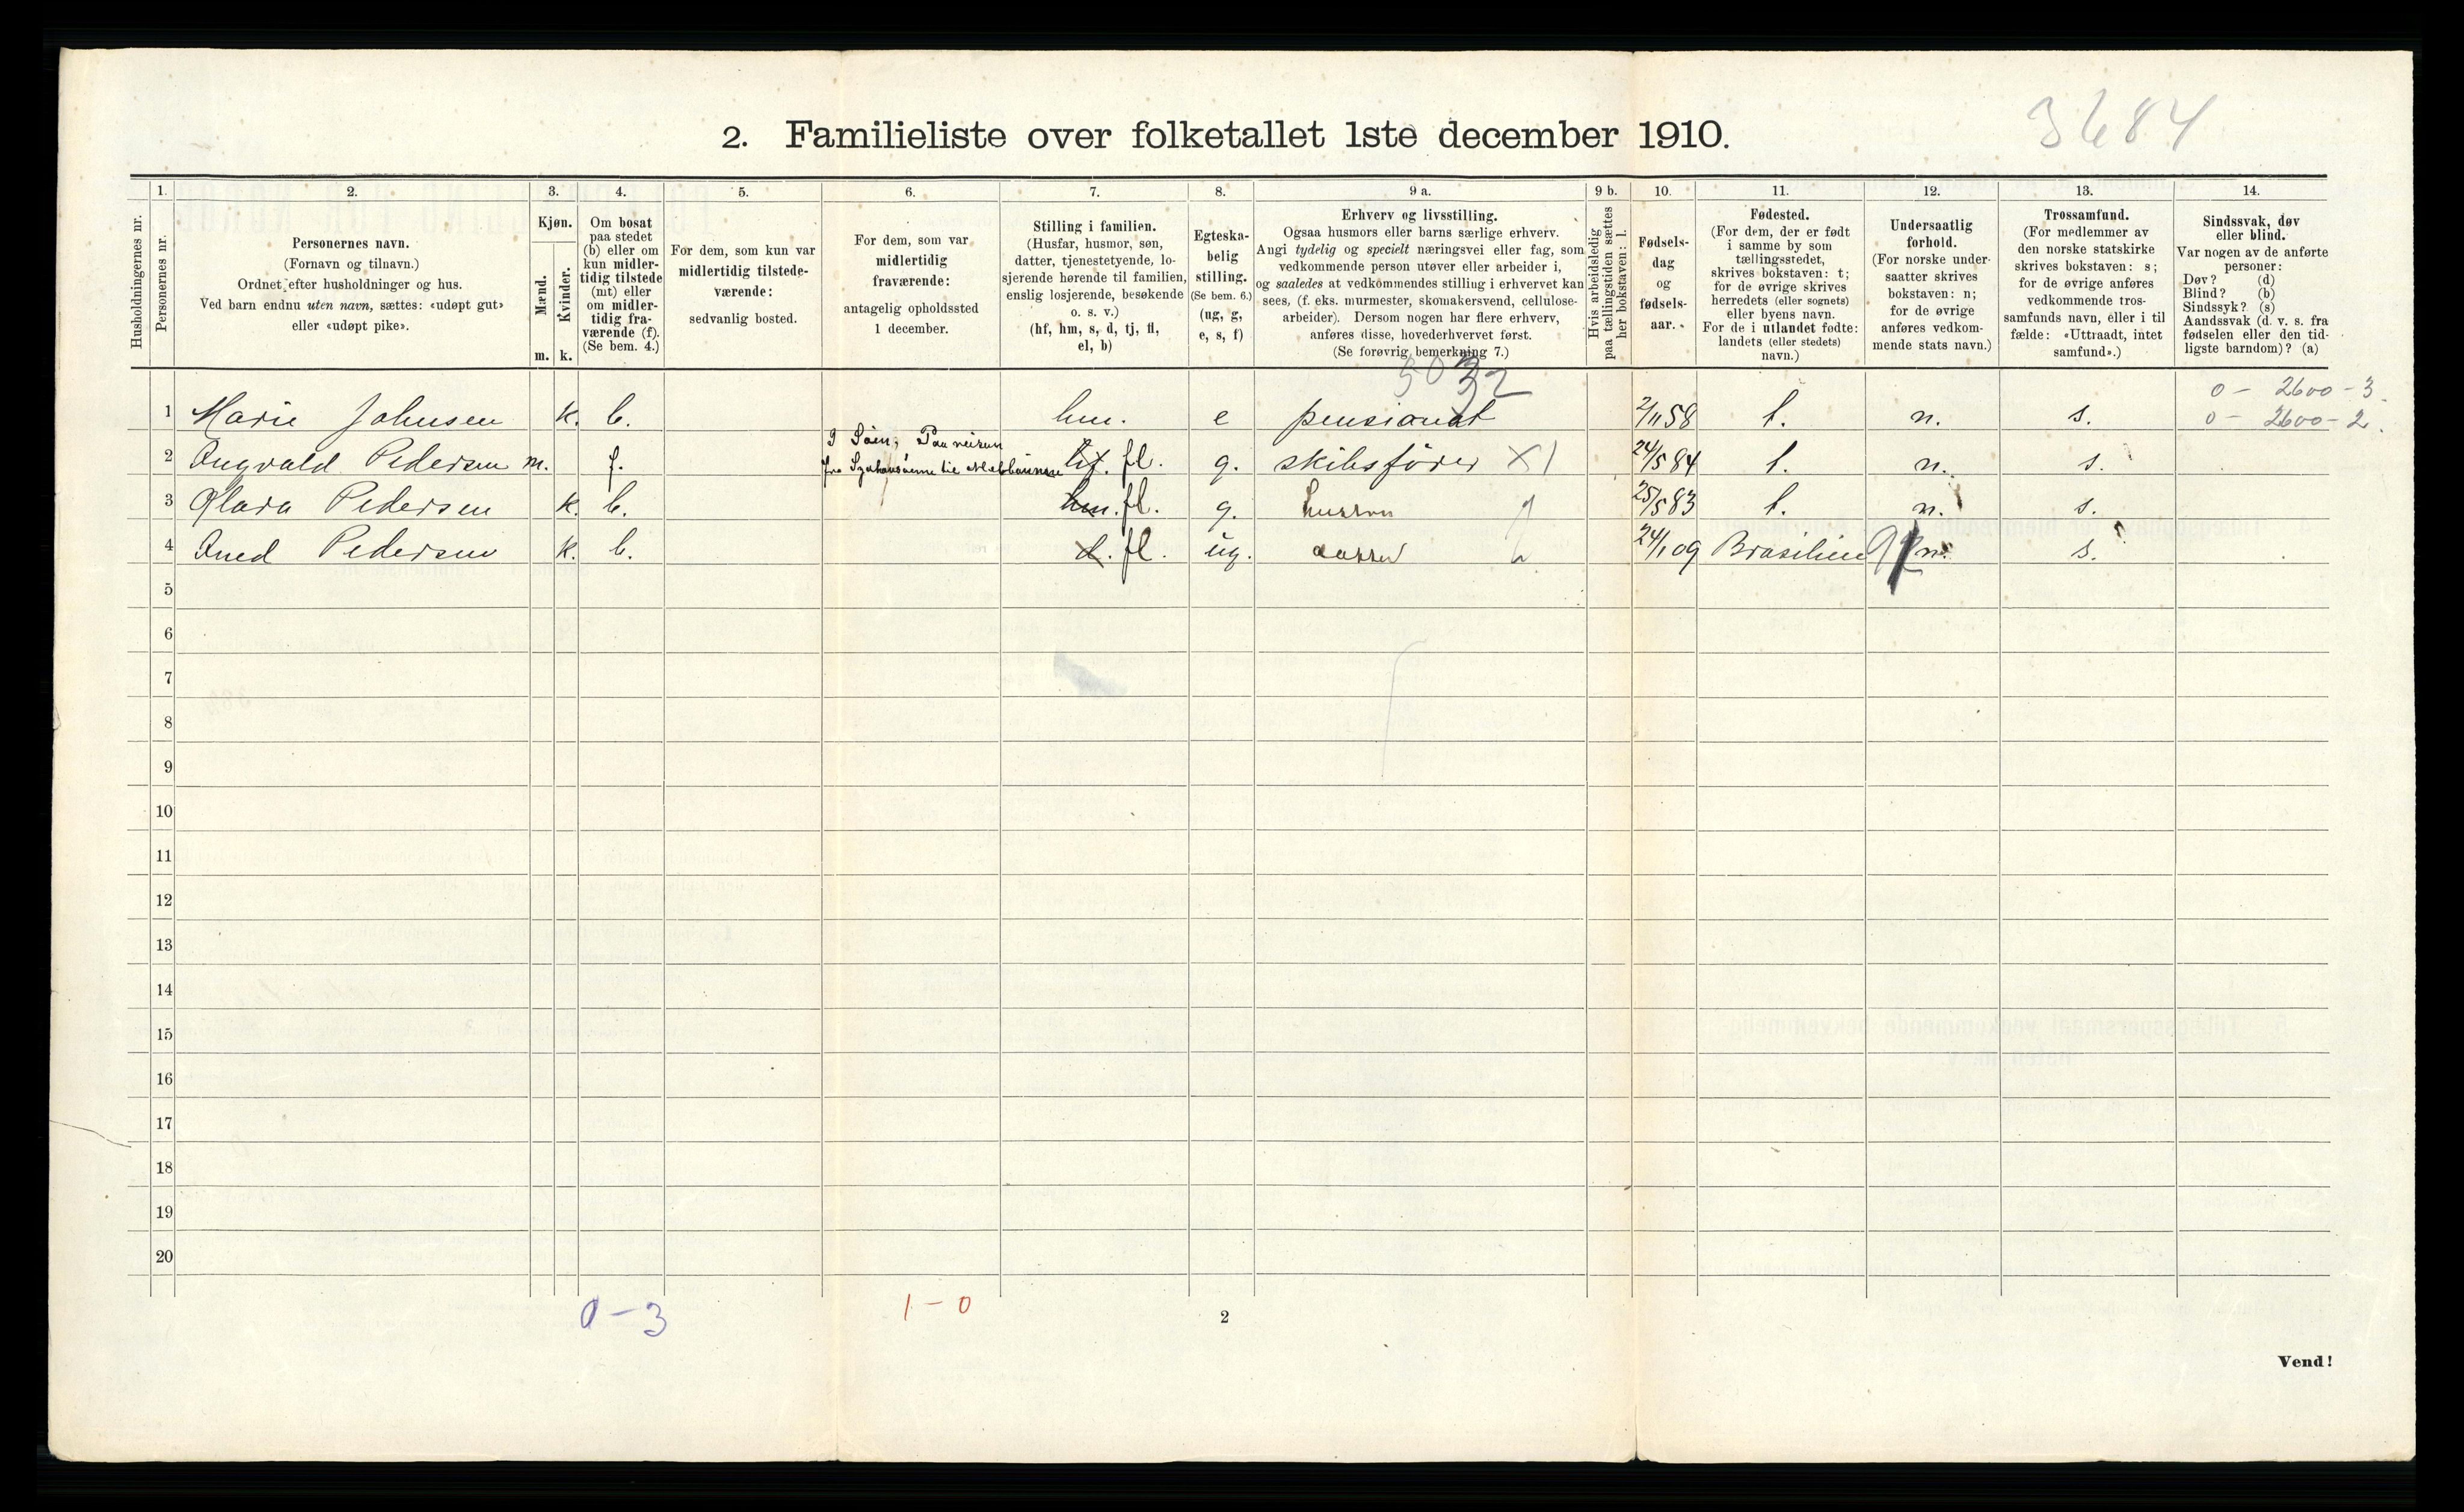 3684
2. Familieliste over folketallet 1ste december 1910.
1. 2. 3. 4. 5. 6. 7. 8. 9 a. 9 b. 10. 11. 12. 13. 14.
Husholdningernes nr.
Personernes nr.
Personernes navn.
(Fornavn og tilnavn.)
Ordnet efter husholdninger og hus.
Ved barn endnu uten navn, sættes: «udøpt gut»
eller «udøpt pike».
Kjøn.
Mænd.
Kvinder.
m. k.
Om bosat
paa stedet
(b) eller om
kun midler-
tidig tilstede
(mt) eller
om midler-
tidig fra-
værende (f).
(Se bem. 4.)
For dem, som kun var
midlertidig tilstede-
værende:
sedvanlig bosted.
For dem, som var
midlertidig
fraværende:
antagelig opholdssted
1 december.
Stilling i familien.
(Husfar, husmor, søn,
datter, tjenestetyende, lo-
sjerende hørende til familien,
enslig losjerende, besøkende
o. s. v.)
(hf, hm, s, d, tj, fl,
el, b)
Egteska-
belig
stilling.
(Se bem. 6.)
(ug, g,
e, s, f)
Erhverv og livsstilling.
Ogsaa husmors eller barns særlige erhverv.
Angi tydelig og specielt næringsvei eller fag, som
vedkommende person utøver eller arbeider i,
og saaledes at vedkommendes stilling i erhvervet kan
sees, (f. eks. murmester, skomakersvend, cellulose-
arbeider). Dersom nogen har flere erhverv,
anføres disse, hovederhvervet først.
(Se forøvrig bemerkning 7.)
Hvis arbeidsledig
paa tællingstiden sættes
her bokstaven: l.
Fødsels-
dag
og
fødsels-
aar.
Fødested.
(For dem, der er født
i samme by som
tællingsstedet,
skrives bokstaven: t;
for de øvrige skrives
herredets (eller sognets)
eller byens navn.
For de i utlandet fødte:
landets (eller stedets)
navn.)
Undersaatlig
forhold.
(For norske under-
saatter skrives
bokstaven: n;
for de øvrige
anføres vedkom-
mende stats navn.)
Trossamfund.
(For medlemmer av
den norske statskirke
skrives bokstaven: s;
for de øvrige anføres
vedkommende tros-
samfunds navn, eller i til
fælde: «Uttraadt, intet
samfund».)
Sindssvak, døv
eller blind.
Var nogen av de anførte
personer:
Døv? (d)
Blind? (b)
Sindssyk? (s)
Aandssvak (d. v. s. fra
fødselen eller den tid-
ligste barndom)? (a)
5032
0 - 2600 - 3.
1 Marie Johnsen k. b. hm. e pensionat 2/11 58 t. n. s. 0 - 2600 - 2.
2 Ingvald Pedersen m. f. fl. g. skibsfører X1 24/5 84 t. n. s.
3 Klara Pedersen k. b. hm. fl. g. 25/5 83 t. n. s.
4 Pedersen k. b. d. fl. ug. 24/1 09 Brasilien n. s.
5
6
7
8
9
10
11
12
13
14
15
16
17
18
19
20
0-3 1-0
2
Vend!